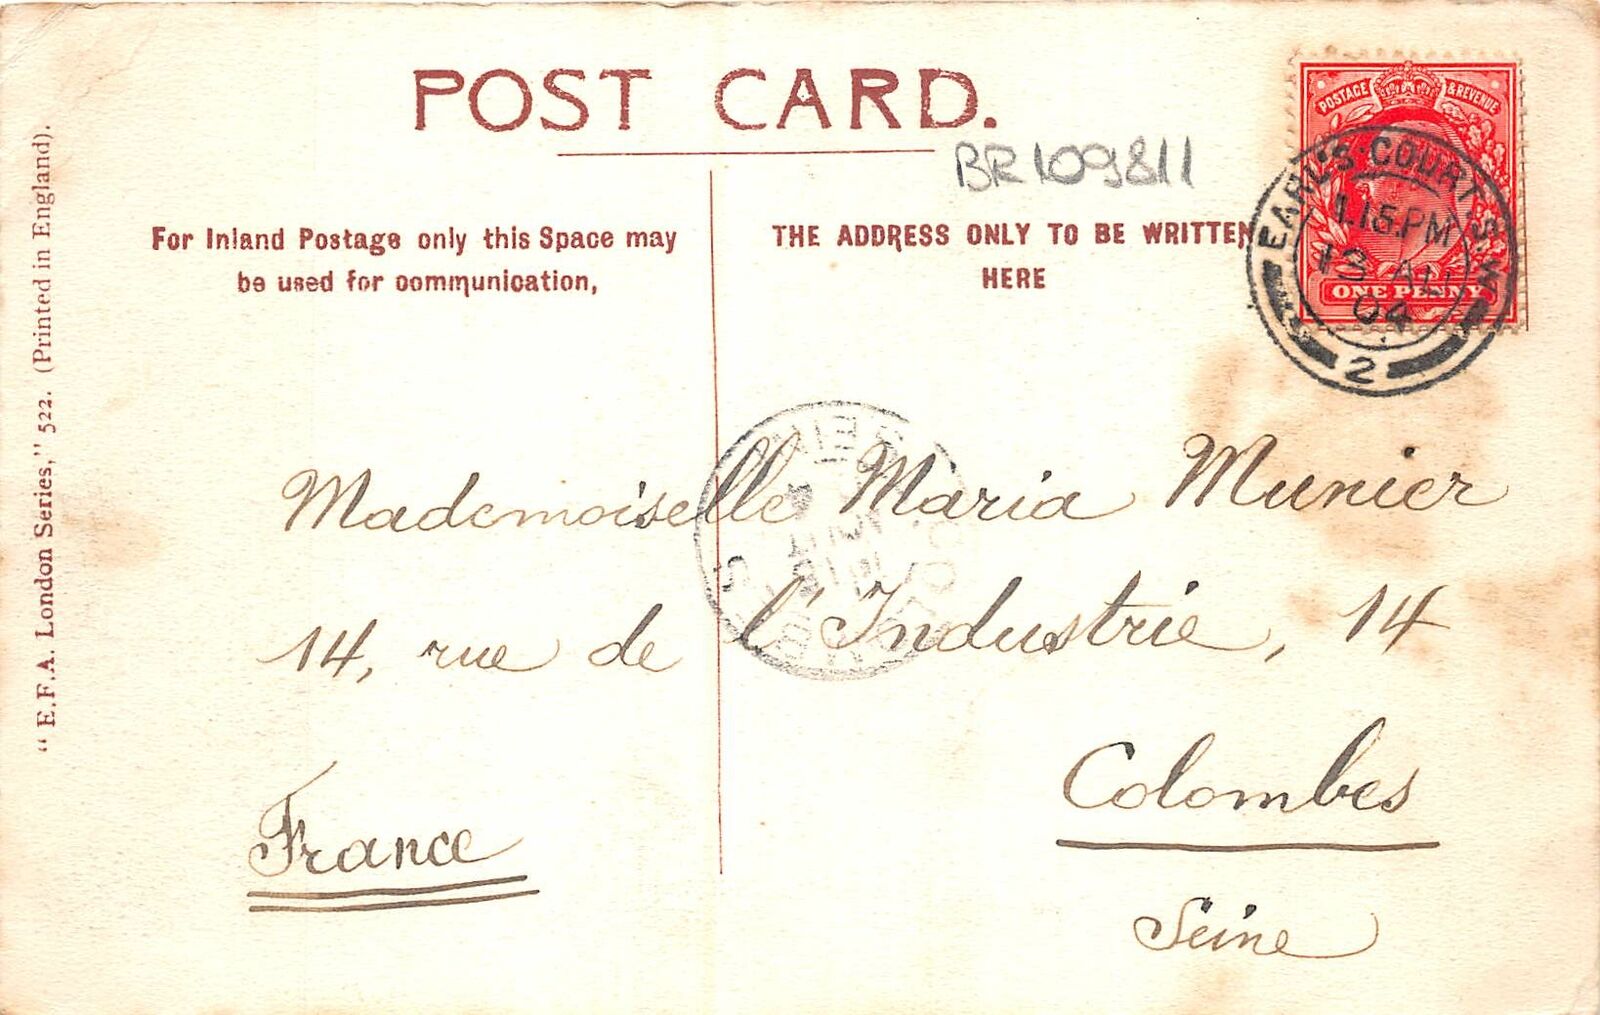 POST CARD.
BR109811
For Inland Postage only this Space may
be used for communication,
THE ADDRESS ONLY TO BE WRITTEN
HERE
POSTAGE & REVENUE
ONE PENNY
EARL'S·COURT·S.W.
1.15.PM
13 AU
04
2
Mademoiselle Maria Munier
14, rue de l'Industrie, 14
Colombes
Seine
France
"E.F.A. London Series," 522. (Printed in England).